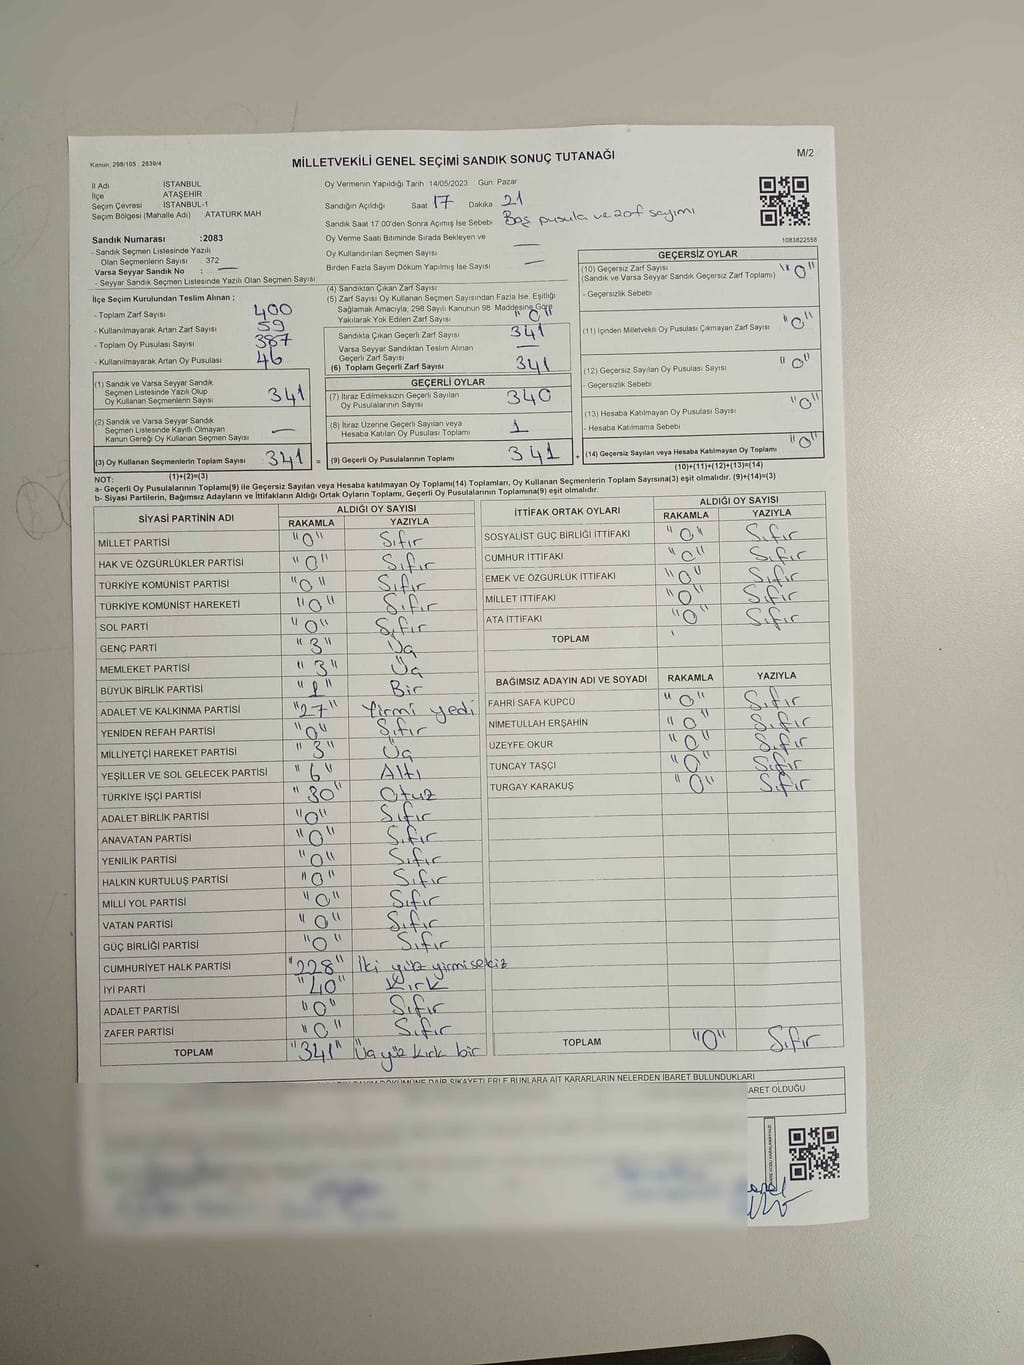 Kanun, 298/105 , 2839/4
MİLLETVEKİLİ GENEL SEÇİMİ SANDIK SONUÇ TUTANAĞI
M/2
İl Adı İSTANBUL
İlçe ATAŞEHİR
Seçim Çevresi İSTANBUL-1
Seçim Bölgesi (Mahalle Adı) ATATÜRK MAH
Oy Vermenin Yapıldığı Tarih 14/05/2023 Gün Pazar
Sandığın Açıldığı Saat 17 Dakika 21
Sandık Saat 17 00'den Sonra Açımış İse Sebebi Boş pusula ve zarf sayımı
Oy Verme Saati Bitiminde Sırada Bekleyen ve
Oy Kullandırılan Seçmen Sayısı —
Birden Fazla Sayım Döküm Yapılmış İse Sayısı —
1083822558
Sandık Numarası :2083
- Sandık Seçmen Listesinde Yazılı
Olan Seçmenlerin Sayısı : 372
Varsa Seyyar Sandık No : —
- Seyyar Sandık Seçmen Listesinde Yazılı Olan Seçmen Sayısı
İlçe Seçim Kurulundan Teslim Alınan ;
- Toplam Zarf Sayısı 400
- Kullanılmayarak Artan Zarf Sayısı 59
- Toplam Oy Pusulası Sayısı 387
- Kullanılmayarak Artan Oy Pusulası 46
(1) Sandık ve Varsa Seyyar Sandık
Seçmen Listesinde Yazılı Olup
Oy Kullanan Seçmenlerin Sayısı 341
(2) Sandık ve Varsa Seyyar Sandık
Seçmen Listesinde Kayıtlı Olmayan
Kanun Gereği Oy Kullanan Seçmen Sayısı —
(3) Oy Kullanan Seçmenlerin Toplam Sayısı 341 =
(1)+(2)=(3)
(4) Sandıktan Çıkan Zarf Sayısı
(5) Zarf Sayısı Oy Kullanan Seçmen Sayısından Fazla İse, Eşitliği
Sağlamak Amacıyla, 298 Sayılı Kanunun 98. Maddesine Göre
Yakılarak Yok Edilen Zarf Sayısı "0"
Sandıkta Çıkan Geçerli Zarf Sayısı 341
Varsa Seyyar Sandıktan Teslim Alınan
Geçerli Zarf Sayısı —
(6) Toplam Geçerli Zarf Sayısı 341
GEÇERLİ OYLAR
(7) İtiraz Edilmeksizin Geçerli Sayılan
Oy Pusulalarının Sayısı 340
(8) İtiraz Üzerine Geçerli Sayılan veya
Hesaba Katılan Oy Pusulası Toplamı 1
(9) Geçerli Oy Pusulalarının Toplamı 341 +
GEÇERSİZ OYLAR
(10) Geçersiz Zarf Sayısı
(Sandık ve Varsa Seyyar Sandık Geçersiz Zarf Toplamı) "0"
- Geçersizlik Sebebi
(11) İçinden Milletvekili Oy Pusulası Çıkmayan Zarf Sayısı "0"
(12) Geçersiz Sayılan Oy Pusulası Sayısı "0"
- Geçersizlik Sebebi
(13) Hesaba Katılmayan Oy Pusulası Sayısı "0"
- Hesaba Katılmama Sebebi
(14) Geçersiz Sayılan veya Hesaba Katılmayan Oy Toplamı "0"
(10)+(11)+(12)+(13)=(14)
NOT:
a- Geçerli Oy Pusulalarının Toplamı(9) ile Geçersiz Sayılan veya Hesaba katılmayan Oy Toplamı(14) Toplamları, Oy Kullanan Seçmenlerin Toplam Sayısına(3) eşit olmalıdır. (9)+(14)=(3)
b- Siyasi Partilerin, Bağımsız Adayların ve İttifakların Aldığı Ortak Oyların Toplamı, Geçerli Oy Pusulalarının Toplamına(9) eşit olmalıdır.
SİYASİ PARTİNİN ADI ALDIĞI OY SAYISI
RAKAMLA YAZIYLA
MİLLET PARTİSİ "0" Sıfır
HAK VE ÖZGÜRLÜKLER PARTİSİ "0" Sıfır
TÜRKİYE KOMÜNİST PARTİSİ "0" Sıfır
TÜRKİYE KOMÜNİST HAREKETİ "0" Sıfır
SOL PARTİ "0" Sıfır
GENÇ PARTİ "3" Üç
MEMLEKET PARTİSİ "3" Üç
BÜYÜK BİRLİK PARTİSİ "1" Bir
ADALET VE KALKINMA PARTİSİ "27" Yirmi yedi
YENİDEN REFAH PARTİSİ "0" Sıfır
MİLLİYETÇİ HAREKET PARTİSİ "3" Üç
YEŞİLLER VE SOL GELECEK PARTİSİ "6" Altı
TÜRKİYE İŞÇİ PARTİSİ "30" Otuz
ADALET BİRLİK PARTİSİ "0" Sıfır
ANAVATAN PARTİSİ "0" Sıfır
YENİLİK PARTİSİ "0" Sıfır
HALKIN KURTULUŞ PARTİSİ "0" Sıfır
MİLLİ YOL PARTİSİ "0" Sıfır
VATAN PARTİSİ "0" Sıfır
GÜÇ BİRLİĞİ PARTİSİ "0" Sıfır
CUMHURİYET HALK PARTİSİ "228" İki yüz yirmisekiz
İYİ PARTİ "40" Kırk
ADALET PARTİSİ "0" Sıfır
ZAFER PARTİSİ "0" Sıfır
TOPLAM "341" Üçyüz kırk bir
İTTİFAK ORTAK OYLARI ALDIĞI OY SAYISI
RAKAMLA YAZIYLA
SOSYALİST GÜÇ BİRLİĞİ İTTİFAKI "0" Sıfır
CUMHUR İTTİFAKI "0" Sıfır
EMEK VE ÖZGÜRLÜK İTTİFAKI "0" Sıfır
MİLLET İTTİFAKI "0" Sıfır
ATA İTTİFAKI "0" Sıfır
TOPLAM
BAĞIMSIZ ADAYIN ADI VE SOYADI RAKAMLA YAZIYLA
FAHRİ SAFA KÜPCÜ "0" Sıfır
NİMETULLAH ERŞAHİN "0" Sıfır
ÜZEYFE OKUR "0" Sıfır
TUNCAY TAŞÇI "0" Sıfır
TURGAY KARAKUŞ "0" Sıfır
TOPLAM "0" Sıfır
DÖKÜMÜNE DAİR ŞİKAYETLERLE BUNLARA AİT KARARLARIN NELERDEN İBARET BULUNDUKLARI
ARET OLDUĞU